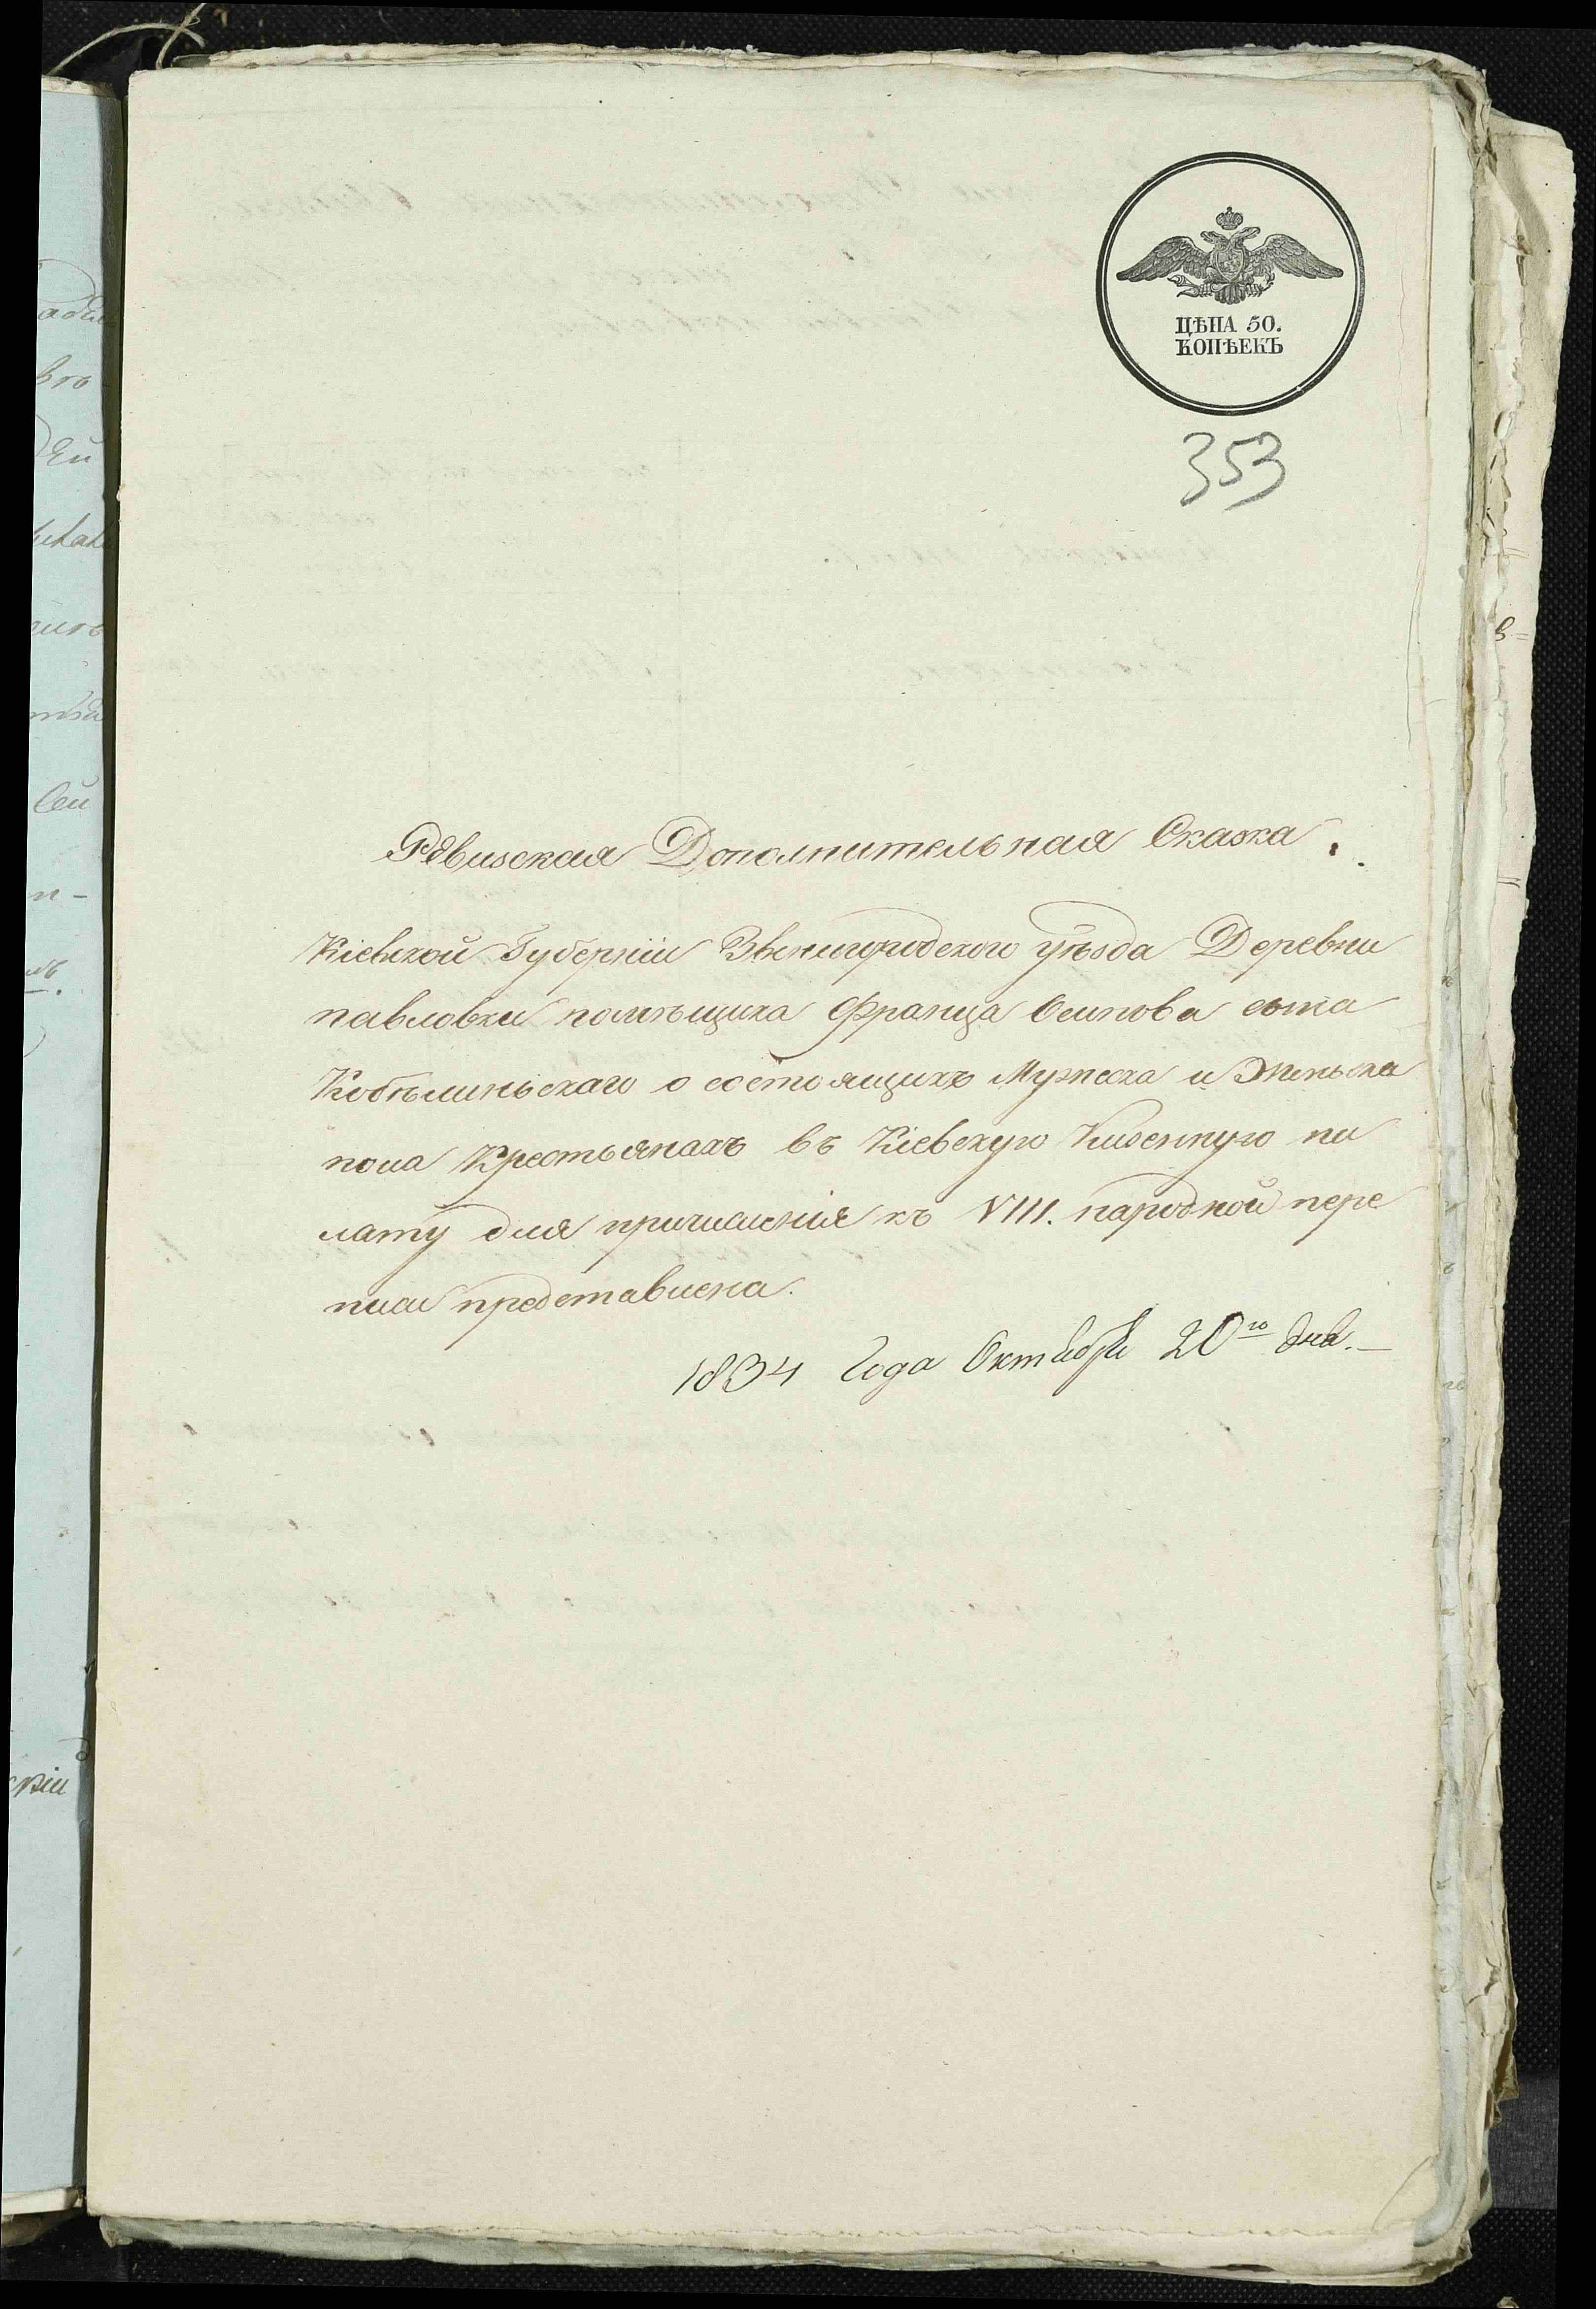 ЦѢНА 50.
КОПѢЕКЪ
353
Ревиская Дополнительная Сказка.
Кіевской Губерніи Звенигородского уѣзда Деревни
павловки помѣщика Франца Осипова сына
Кобѣлиньскаго о состоящихъ Мужеска и Женьска
пола Крестьянахъ въ Кіевскую Казенную па
лату для причисленія къ VIII. народной пере
писи представлена.
1834 Года Октября 20го дня.